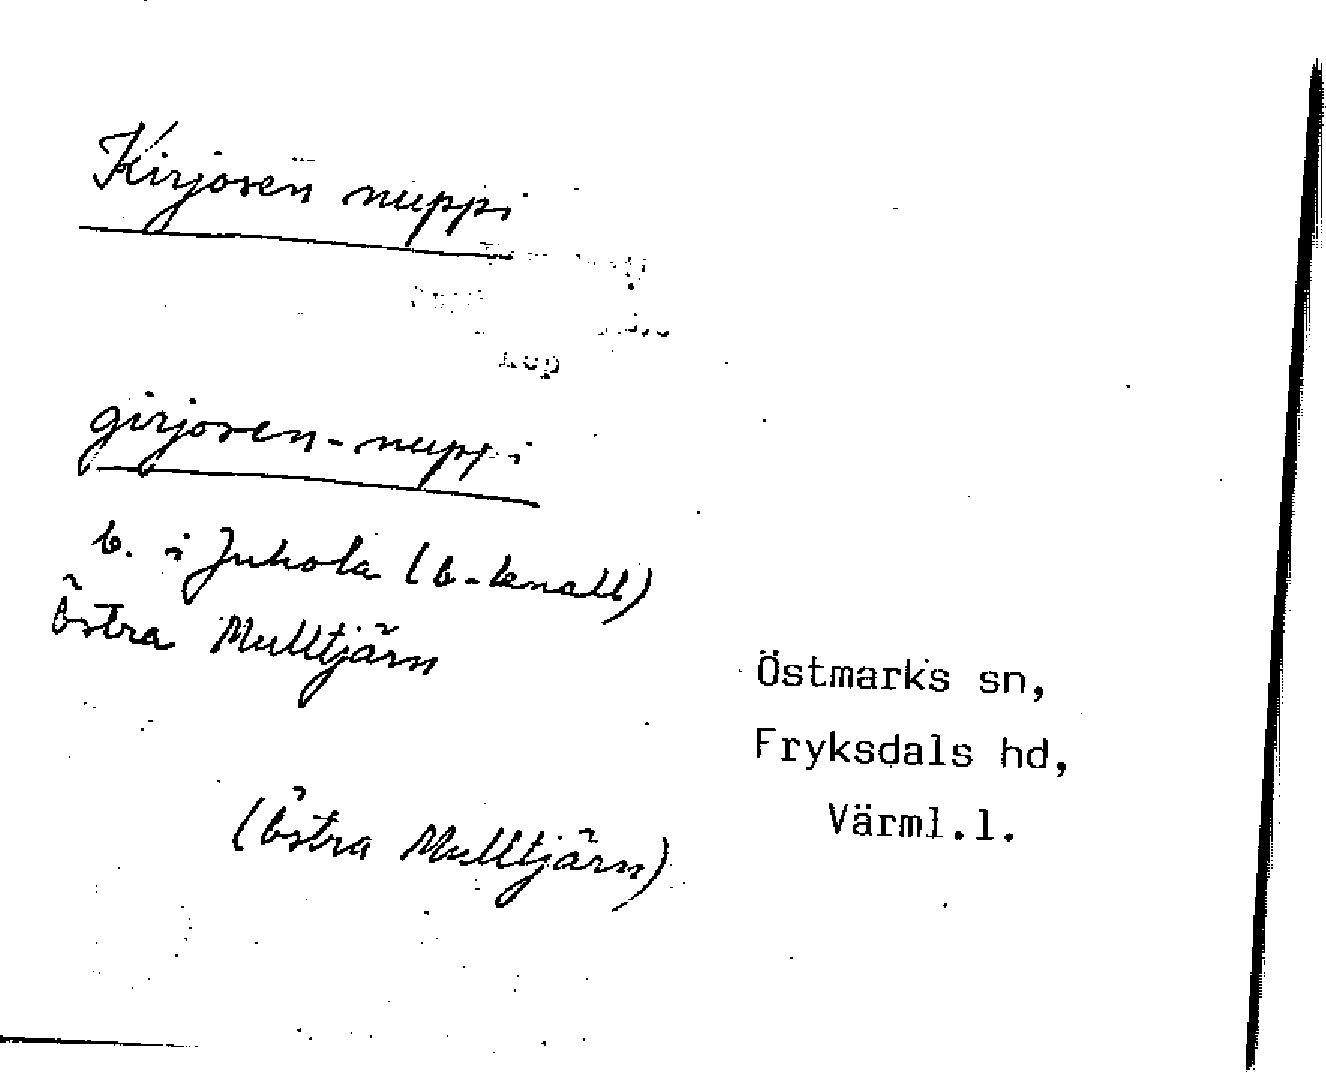 Kirjosen nuppi
girjosen-nuppi
b. i Juhola (b-knall)
Östra Multtjärn
Östmarks sn,
Fryksdals hd,
Värml.l.
(Östra Multtjärn)